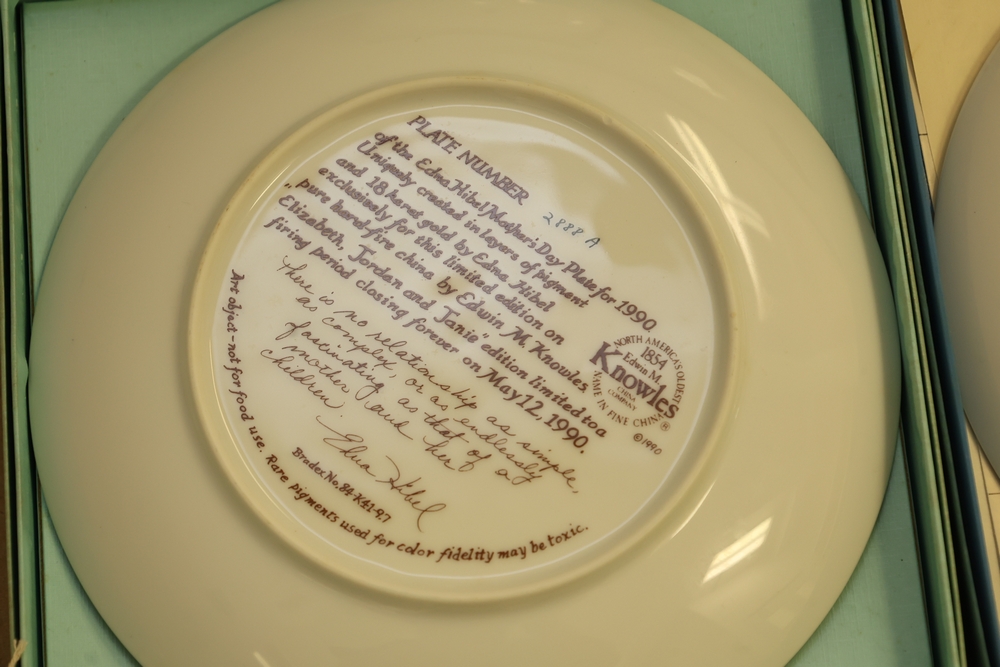 PLATE NUMBER 2888 A
of the Edna Hibel Mother's Day Plate for 1990.
Uniquely created in layers of pigment
and 18 karat gold by Edna Hibel
exclusively for this limited edition on
pure hard-fire china by Edwin M. Knowles
"Elizabeth, Jordan and Janie" edition limited to a
firing period closing forever on May 12, 1990.
There is no relationship as simple,
as complex or as endlessly
fascinating as that of a
mother and her
children.
Edna Hibel
Bradex No. 84-K41-9.7
Art object-not for food use. Rare pigments used for color fidelity may be toxic.
NORTH AMERICA'S OLDEST
1854
Edwin M.
Knowles
CHINA
COMPANY
NAME IN FINE CHINA ®
©1990